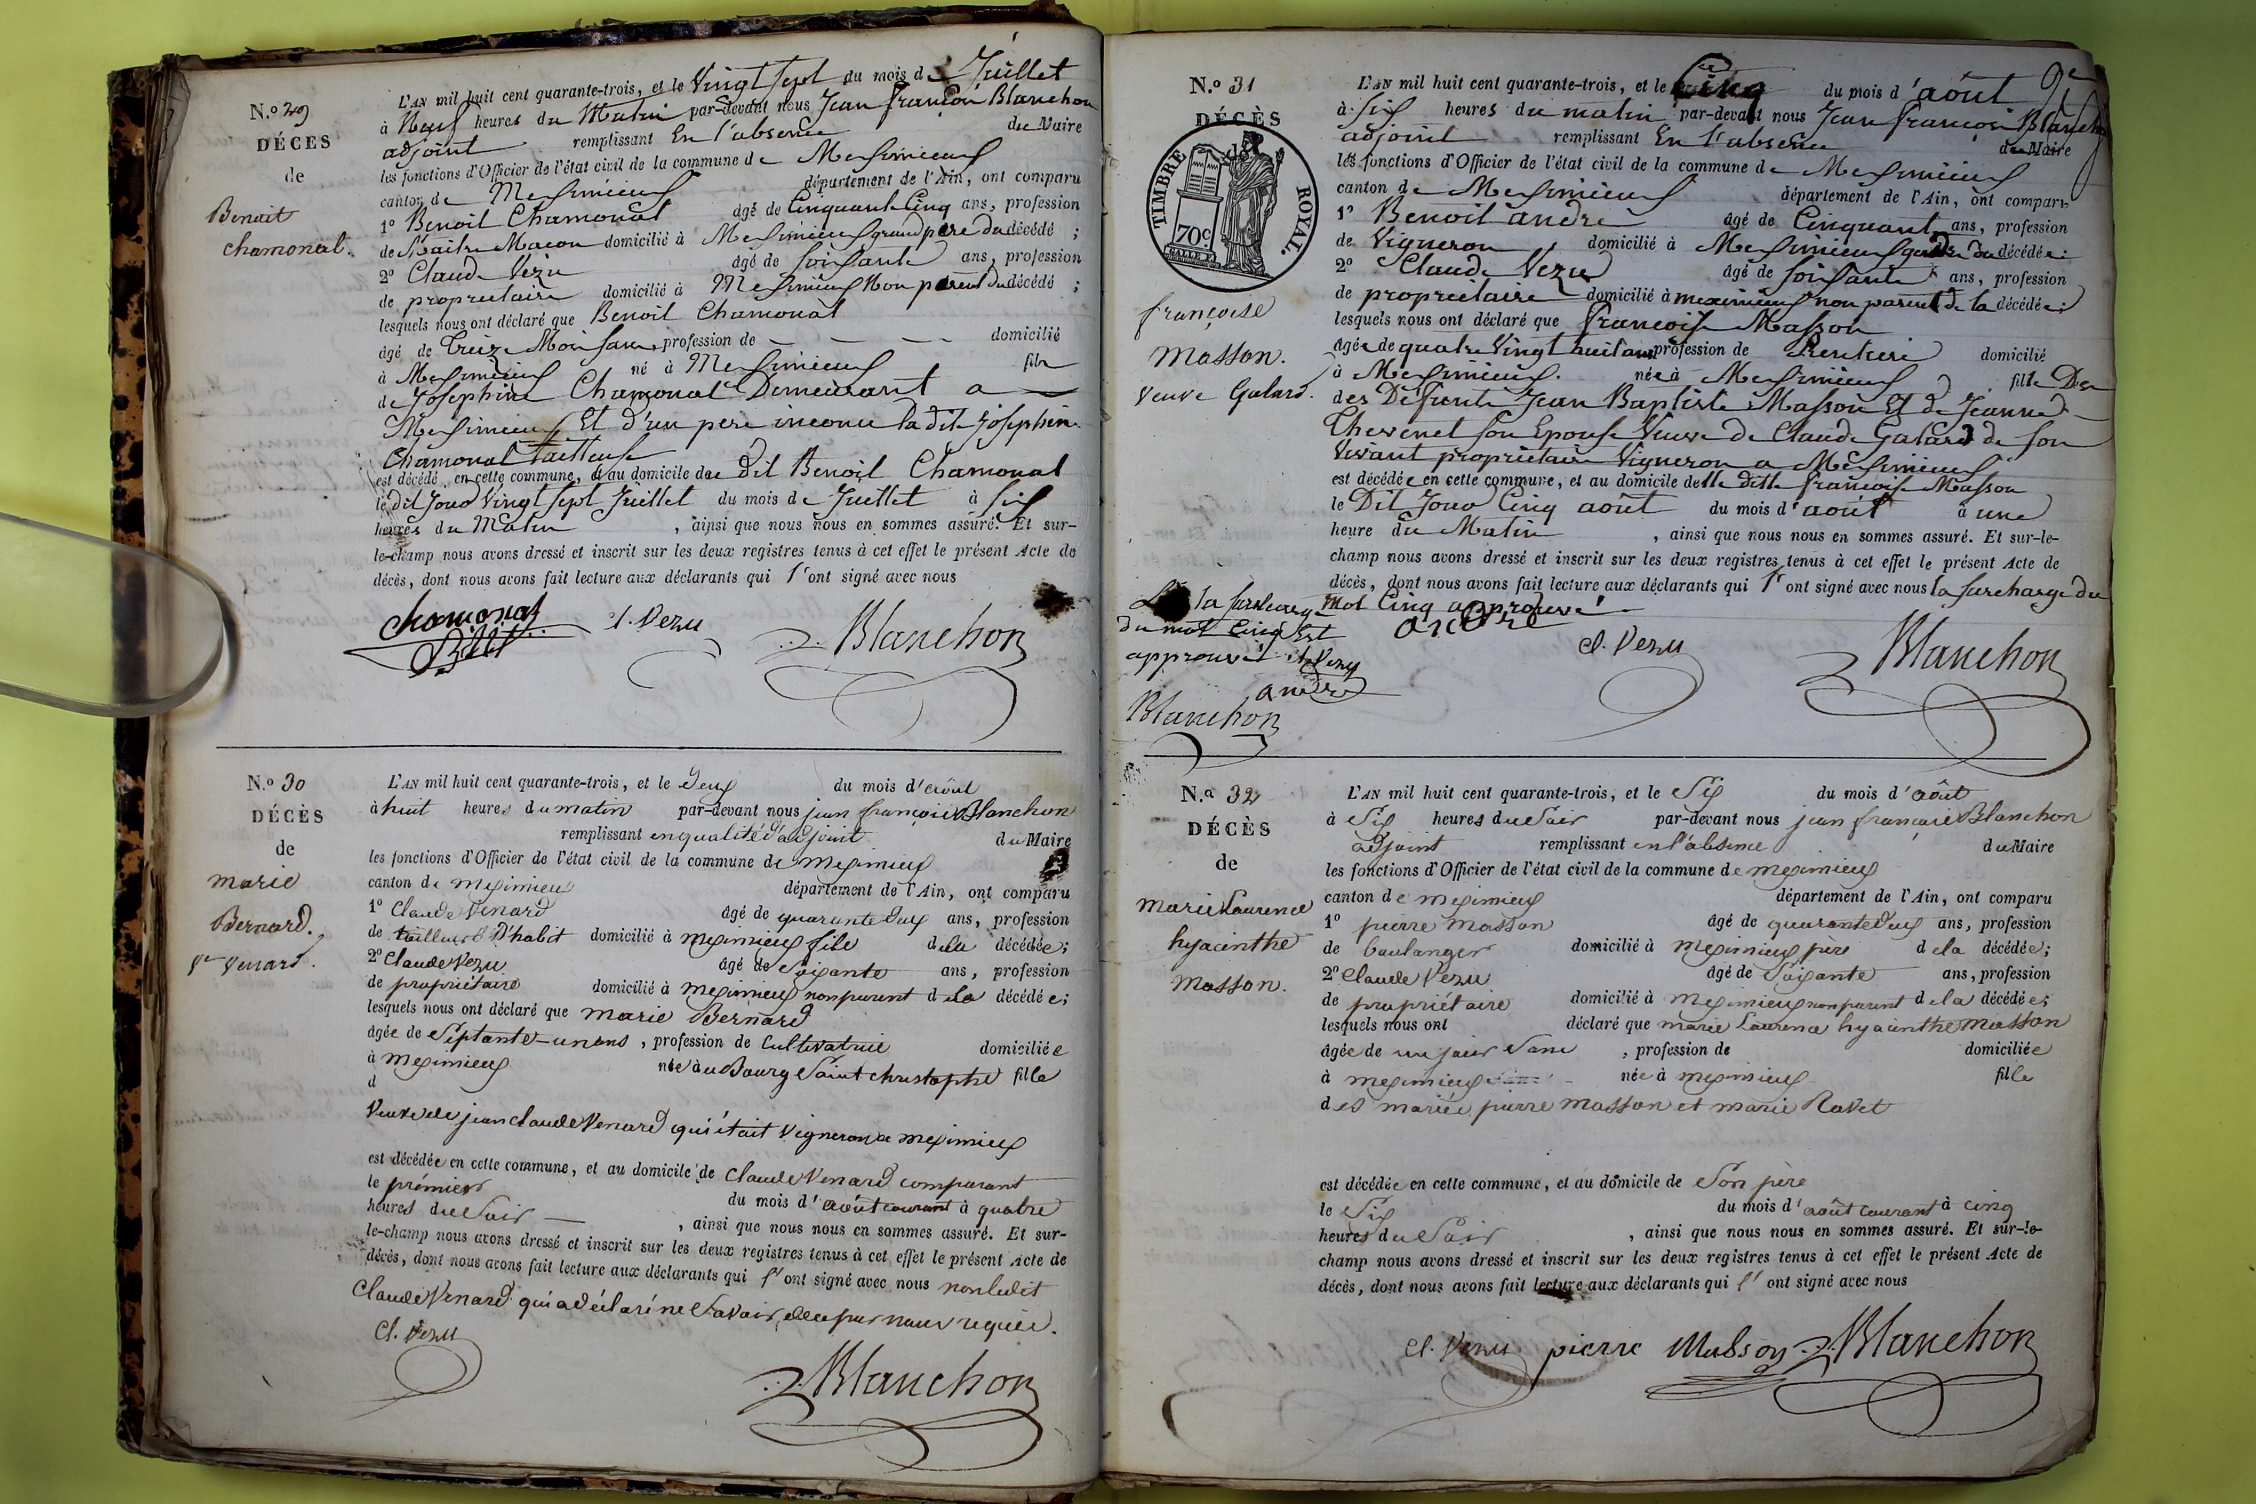 N.º 29
DÉCÈS
de
Benoit
chamonal.
L'AN mil huit cent quarante-trois, et le Vingt Sept du mois de Juillet
à Neuf heures du Matin par-devant nous Jean françois Blanchon
adjoint remplissant En l'absence du Maire
les fonctions d'Officier de l'état civil de la commune de Meximieux
canton de Meximieux département de l'Ain, ont comparu
1º Benoit Chamonal âgé de Cinquante Cinq ans, profession
de Maitre Macon domicilié à Meximieux grand pere du décédé ;
2º Claude Vezu âgé de soixante ans, profession
de propriétaire domicilié à Meximieux Non parent du décédé ;
lesquels nous ont déclaré que Benoit Chamonal
âgé de Treize Mois sans profession de — — — — domicilié
à Meximieux né à Meximieux fils
de Josephine Chamonal Demeurant a
Meximieux Et d'un pere inconu la dite Josephine
Chamonal tailleuse
est décédé en cette commune, et au domicile du dit Benoit Chamonal
le dit Jour Vingt Sept Juillet du mois de Juillet à six
heures du Matin , ainsi que nous nous en sommes assuré. Et sur-
le-champ nous avons dressé et inscrit sur les deux registres tenus à cet effet le présent Acte de
décès, dont nous avons fait lecture aux déclarants qui l'ont signé avec nous
chamonal
cl. Vezu
Blanchon
N.º 30
DÉCÈS
de
marie
Bernard.
Vve Venard.
L'AN mil huit cent quarante-trois, et le Deux du mois d'août
à huit heures du matin par-devant nous jean françois Blanchon
remplissant en qualité d'adjoint du Maire
les fonctions d'Officier de l'état civil de la commune de meximieux
canton de meximieux département de l'Ain, ont comparu
1º Claude Venard âgé de quarante deux ans, profession
de tailleur d'habit domicilié à meximieux fils de la décédée;
2º Claude Vezu âgé de soixante ans, profession
de propriétaire domicilié à meximieux non parent de la décédée;
lesquels nous ont déclaré que marie Bernard
âgée de Septante-un ans , profession de Cultivatrice domiciliée
à meximieux née à au Bourg Saint christophe fille
d
Veuve de jean claude Venard qui était Vigneron a meximieux
est décédée en cette commune, et au domicile de Claude Venard comparant
le premier du mois d'août courant à quatre
heures du Soir — , ainsi que nous nous en sommes assuré. Et sur-
le-champ nous avons dressé et inscrit sur les deux registres tenus à cet effet le présent Acte de
décès, dont nous avons fait lecture aux déclarants qui l'ont signé avec nous non ledit
Claude Venard qui a déclaré ne Savoir, de ce par nous requis.
cl. Vezu
Blanchon
N.º 31
DÉCÈS
de
TIMBRE ROYAL.
70c
françoise
masson.
veuve Galard.
L'AN mil huit cent quarante-trois, et le Cinq du mois d'août
à Six heures du matin par-devant nous Jean françois Blanchon
adjoint remplissant En l'absence du Maire
les fonctions d'Officier de l'état civil de la commune de Meximieux
canton de Meximieux département de l'Ain, ont comparu
1º Benoit andré âgé de Cinquante ans, profession
de Vigneron , domicilié à Meximieux gendre du décédée;
2º Claude Vezu âgé de soixante ans, profession
de propriétaire domicilié à meximieux non parent de la décédée;
lesquels nous ont déclaré que francoise Masson
âgée de quatre Vingt huit ans profession de Rentiere domicilié
à Meximieux. née à Meximieux fille De
des Défunts Jean Baptiste Masson Et de Jeanne
Thevenet son Epouse Veuve de Claude Galard de son
Vivant proprietaire Vigneron a Meximieux
est décédée en cette commune, et au domicile de lle ditte francoise Masson
le Dit Jour Cinq août du mois d'août à une
heure du Matin , ainsi que nous nous en sommes assuré. Et sur-le-
champ nous avons dressé et inscrit sur les deux registres tenus à cet effet le présent Acte de
décès, dont nous avons fait lecture aux déclarants qui l'ont signé avec nous la surcharge du
mot Cinq approuvé
la surcharge
du mot Cinq Est
approuvé cl Vezu
andré
Blanchon
andré
cl. Vezu
Blanchon
N.º 32
DÉCÈS
de
marie Laurence
hyacinthe
masson.
L'AN mil huit cent quarante-trois, et le Six du mois d'août
à Six heures du Soir par-devant nous jean françois Blanchon
adjoint remplissant en l'absence du Maire
les fonctions d'Officier de l'état civil de la commune de meximieux
canton de meximieux département de l'Ain, ont comparu
1º pierre masson âgé de quarante deux ans, profession
de boulanger domicilié à meximieux père de la décédée;
2º Claude Vezu âgé de Soixante ans, profession
de propriétaire domicilié à meximieux non parent de la décédée;
lesquels nous ont déclaré que marie Laurence hyacinthe masson
âgée de un jour Sans , profession de domiciliée
à meximieux née à meximieux fille
des mariés pierre masson et marie Ravet
est décédée en cette commune, et au domicile de Son père
le Six du mois d'août courant à cinq
heures du Soir , ainsi que nous nous en sommes assuré. Et sur-le-
champ nous avons dressé et inscrit sur les deux registres tenus à cet effet le présent Acte de
décès, dont nous avons fait lecture aux déclarants qui l'ont signé avec nous
cl. Vezu pierre Masson Blanchon